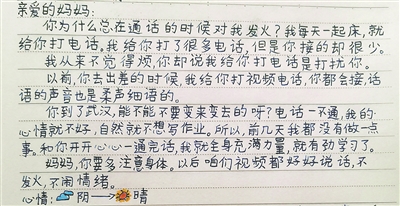 亲爱的妈妈:
你为什么总在通话的时候对我发火?我每天一起床,就
给你打电话。我给你打了很多电话,但是你接的却很少。
我从来不觉得烦,你却说我给你打电话是打扰你。
以前,你去出差的时候,我给你打视频电话,你都会接,话
语的声音也是柔声细语的。
你到了武汉,能不能不要变来变去的呀?电话一不通,我的
心情就不好,自然就不想写作业。所以,前几天我都没有做一点
事。和你开开心心一通完话,我就全身充满力量,就有劲学习了。
妈妈,你要多注意身体。以后咱们视频都好好说话,不
发火,不闹情绪。
心情:阴→晴